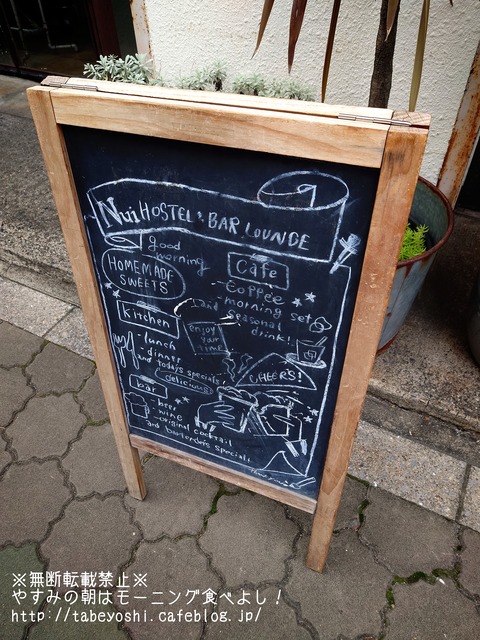 Nui HOSTEL & BAR LOUNGE
good morning
HOMEMADE
SWEETS
Cafe
- coffee
- morning set
and seasonal
drink!
Kitchen
enjoy
your
time
- lunch
- dinner
and today's specials!
delicious
CHEERS!
bar
- beer
- wine
- original cocktail
and bartender's special!
※無断転載禁止※
やすみの朝はモーニング食べよし！
http://tabeyoshi.cafeblog.jp/